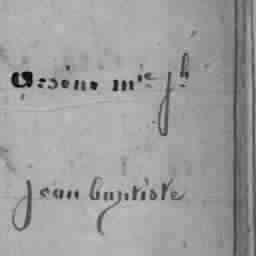 arsène mie jh
jean baptiste